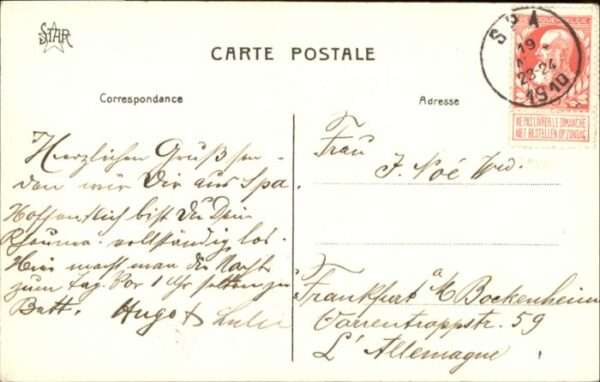 STAR
CARTE POSTALE
SPA
19
23-24
1910
NE PAS LIVRER LE DIMANCHE
NIET BESTELLEN OP ZONDAG
Correspondance
Herzlichen Gruß sen-
den wir Dir aus Spa.
Hoffentlich bist Du Dein
Rheuma vollständig los.
Hier macht man die Nacht
zum Tag. Vor 1 Uhr selten zu
Bett. Hugo &
Adresse
Frau
J. Noé Wwe.
Frankfurt a/M Bockenheim
Varrentrappstr. 59
L'Allemagne